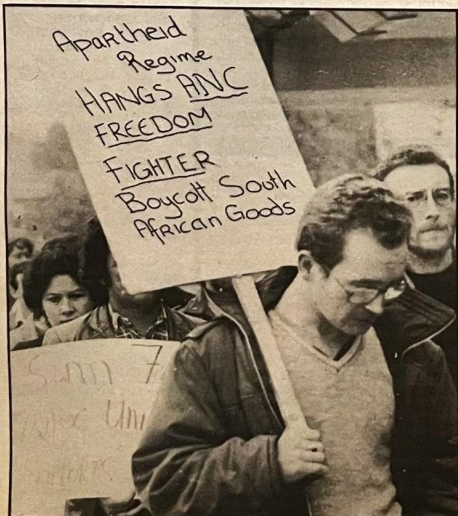 Apartheid
Regime
HANGS ANC
FREEDOM
FIGHTER
Boycott South
African Goods
7
Uni